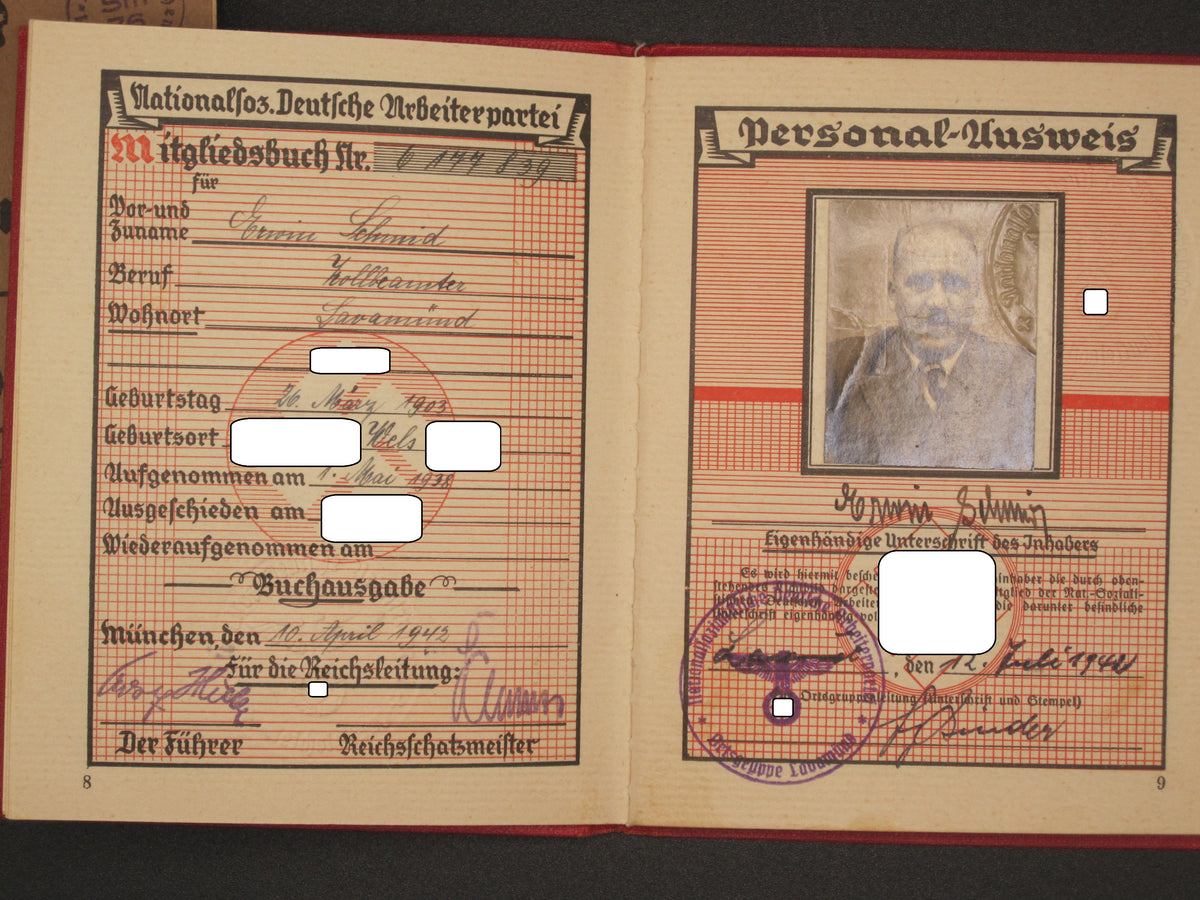 Nationalsoz. Deutsche Arbeiterpartei
Mitgliedsbuch Nr. 6 177 839
für
Vor- und Zuname Erwin Schmid
Beruf Zollbeamter
Wohnort Lavamünd
Geburtstag 26. März 1903
Geburtsort Wels
Aufgenommen am 1. Mai 1938
Ausgeschieden am
Wiederaufgenommen am
Buchausgabe
München, den 10. April 1942
Für die Reichsleitung:
Der Führer Reichsschatzmeister
8
Personal-Ausweis
Erwin Schmid
Eigenhändige Unterschrift des Inhabers
Es wird hiermit besche inhaber die durch oben-
stehendes Lichtbild dargeste itglied der Nat.-Soziali-
die darunter befindliche
Unterschrift eigenhändig vol
, den 12. Juli 1942
Ortsgruppenleitung (Unterschrift und Stempel)
Nationalsozialistische Deutsche Arbeiterpartei
Ortsgruppe Lavamünd
9